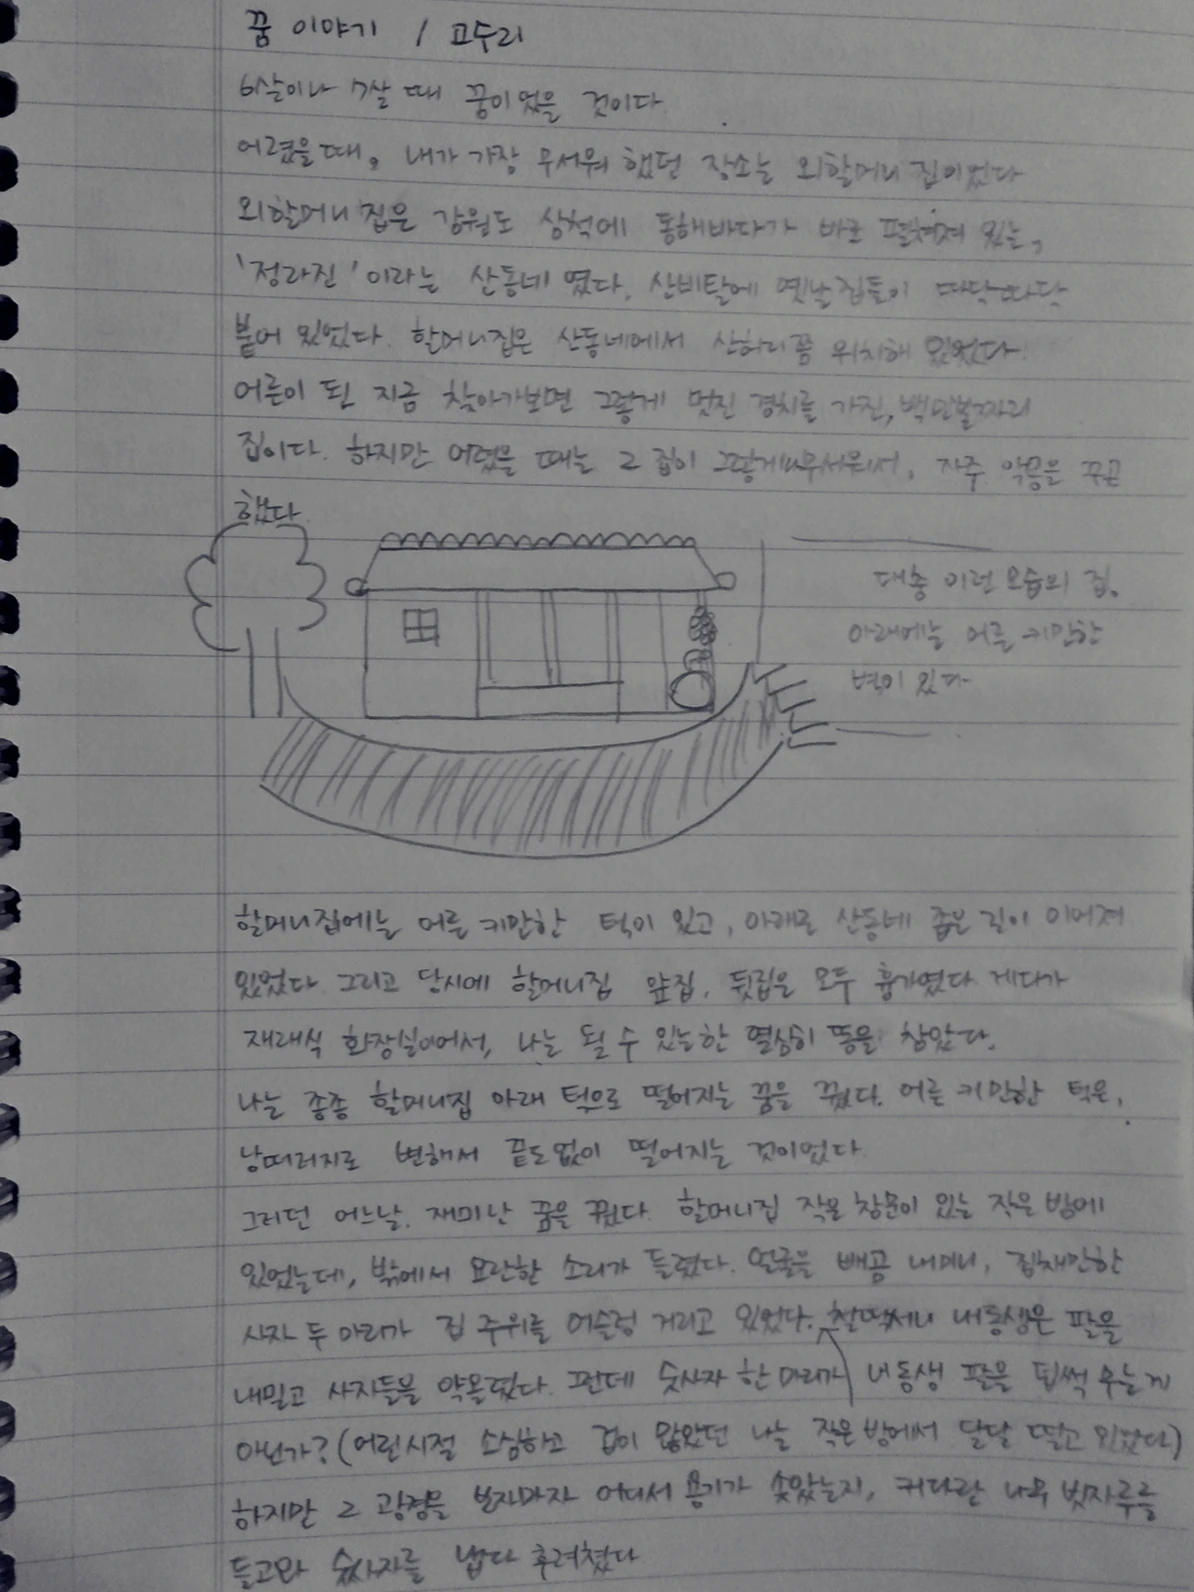 꿈 이야기 / 고두리
6살이나 7살 때 꿈이었을 것이다.
어렸을때, 내가 가장 무서워 했던 장소는 외할머니 집이었다
외할머니 집은 강원도 삼척에 동해바다가 바로 펼쳐져 있는,
'정라진' 이라는 산동네 였다. 산비탈에 옛날집들이 따닥따닥
붙어 있었다. 할머니집은 산동네에서 산허리쯤 위치해 있었다.
어른이 된 지금 찾아가보면 그렇게 멋진 경치를 가진, 백만불짜리
집이다. 하지만 어렸을 때는 그 집이 그렇게 무서워서, 자주 악몽을 꾸곤
했다.
대충 이런 모습의 집.
아래에는 어른 키만한
벽이 있다
할머니집에는 어른 키만한 턱이 있고, 아래로 산동네 좁은 길이 이어져
있었다. 그리고 당시에 할머니집 앞집, 뒷집은 모두 흉가였다. 게다가
재래식 화장실이어서, 나는 될 수 있는한 열심히 똥을 참았다.
나는 종종 할머니집 아래 턱으로 떨어지는 꿈을 꿨다. 어른 키만한 턱은,
낭떠러지로 변해서 끝도없이 떨어지는 것이었다.
그러던 어느날. 재미난 꿈을 꿨다. 할머니집 작은 창문이 있는 작은 방에
있었는데, 밖에서 요란한 소리가 들렸다. 얼굴을 빼꼼 내미니, 집채만한
사자 두 마리가 집 주위를 어슬렁 거리고 있었다. 철딱서니 내동생은 팔을
내밀고 사자들을 약올렸다. 그런데 숫사자 한 마리가 내 동생 팔을 덥썩 무는게
아닌가? (어린시절 소심하고 겁이 많았던 나는 작은 방에서 달달 떨고 있었다)
하지만 그 광경을 보자마자 어디서 용기가 솟았는지, 커다란 나무 빗자루를
들고와 숫사자를 냅다 후려쳤다